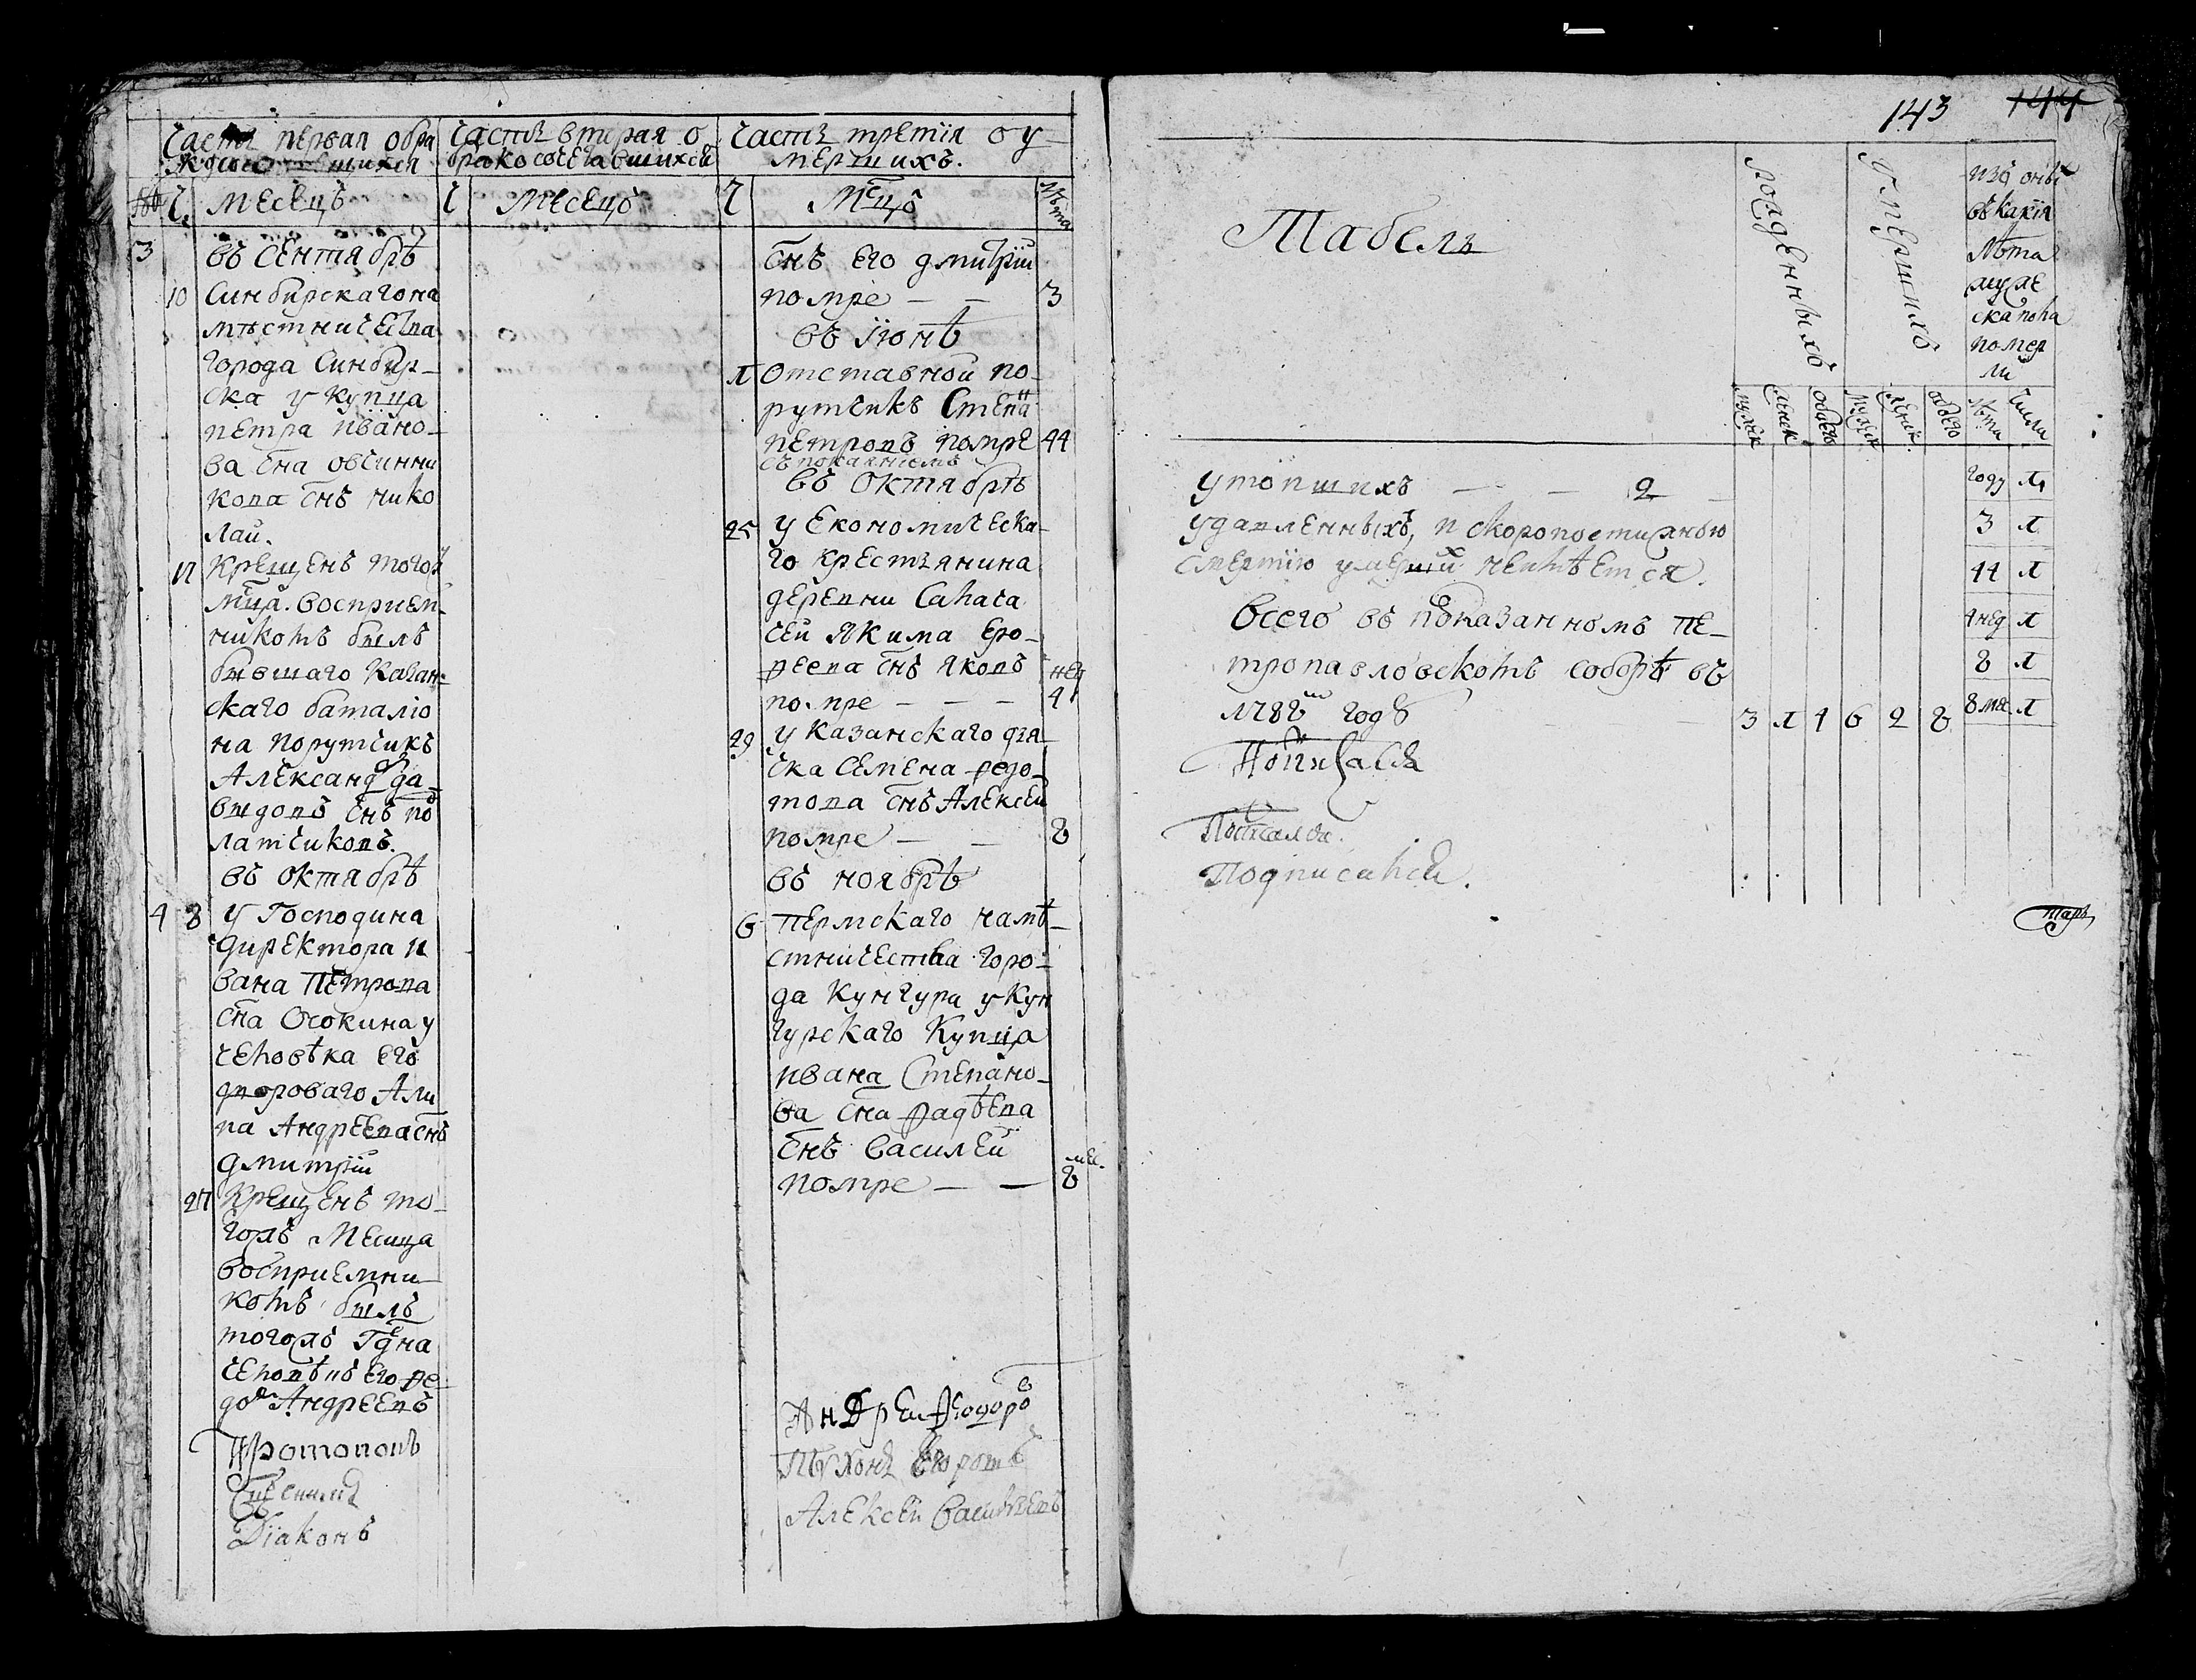 143 144
Часть первая о ра
ждающихся
№ Ч. месецъ
3 въ сентябрѣ
10 Синбирскаго на
мѣстничества
города Синбир-
ска у купца
петра ивано-
ва сна овчинни
кова снъ нико
лай.
17 Крещенъ тогож
мца. восприем-
никомъ былъ
бывшаго Казан-
скаго баталио
на порутчикъ
Александръ да-
выдовъ снъ по
латчиковъ.
въ октябрѣ
4 8 у Господина
директора и
вана Петрова
сна Осокина у
человѣка его
двороваго Али
па Андреева снъ
дмитрій
27 Крещенъ то-
гожъ месяца
восприемни-
комъ былъ
тогожъ Гдна
человѣкъ его фе-
доръ Андреевъ
Часть вторая о
бракосочетавшихся
ч месецъ
Часть третія о у
мершихъ.
Ч Мсцъ лѣта
снъ его дмитрій
помре — — 3
въ іюнѣ
1 Отставной по-
рутчикъ Степанъ
петровъ помре 44
съ покаяніемъ
въ Октябрѣ
25 у Економическа-
го крестьянина
деревни
сей Якима Еро-
феева снъ Яковъ нед
помре — — — 4
29 у Казанскаго дья
чка Семена федо-
това снъ Алексей
помре — — 2
въ ноябрѣ
6 Пермскаго намѣ-
стничества горо-
да Кунгура у Кун
гурскаго Купца
ивана Степано-
ва сна фадѣева
снъ Василей ме.
помре — — 8
Протопопъ Андрей Феодоровъ
Священникъ Тихонъ Егоровъ
Діаконъ Алексей Васильевъ
Табель
рожденныхъ
умершихъ
изъ оныхъ
въ какія
лѣта
муже
ска пола
помер
ли
мужек женск обоего мужск женск обоего лѣта числа
утопшихъ — — 2 году 1
удавленныхъ, и скоропостижною 3 1
смертію умершихъ неимѣется. 44 1
Всего въ показанномъ пе- 4 нед 1
тропавловскомъ соборѣ въ 2 1
178 году 3 1 4 6 2 8 8 ме 1
Подписался
Подписался.
Подписался.